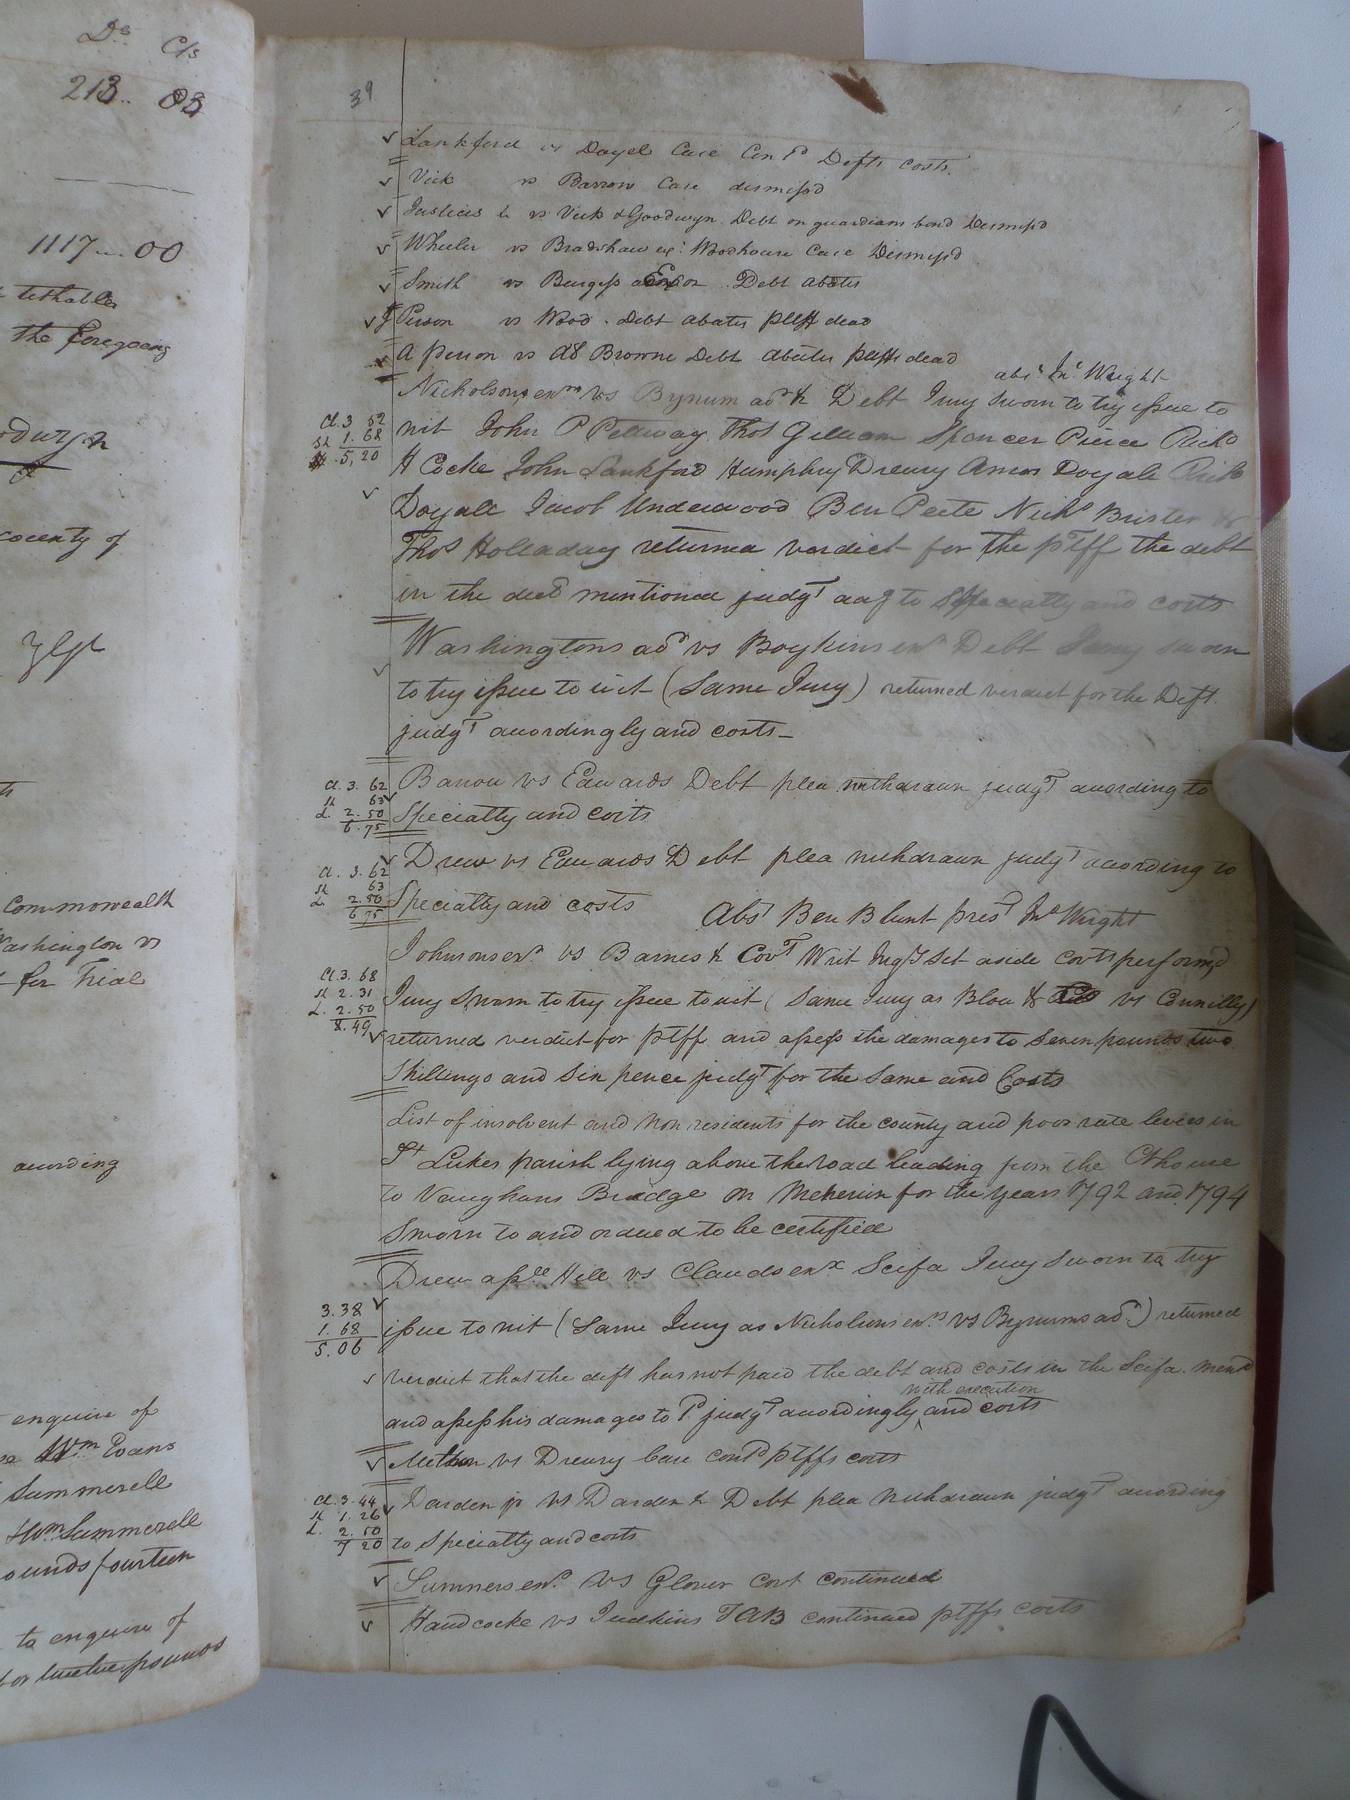 Ds Cts
213.. 03
1117 .. 00
tithables
the foregoing
county of
Commonwealth
Washington vs
for Trial
according
enquire of
Wm Evans
Summerell
Wm Summerell
pounds fourteen
to enquire of
for twelve pounds
39
Lankford vs Doyel Case Contd Defts costs.
Vick vs Barrow Case dismissd
Justices &c vs Vick & Goodwyn. Debt on guardians bond Dismissd
Wheeler vs Bradshaw ex: Woodhouse Case Dismissd
Smith vs Burgess Exor. Debt abates
J Person vs Wood. Debt abates pltff dead
A person vs Browne Debt abates pltffs dead
abst Jno Wright
Nicholsons exrs vs Bynum adr & Debt Jury sworn to try issue to
Cl. 3 52
Sh 1. 68
5, 20
wit John P Pettway Thos Gilliam Spencer Pierce Richd
H Cocke John Lankford Humphry Drewry Amos Doyale Richd
Doyale Jacob Underwood Ben Peete Nichs Brister &
Thos Holladay returned verdict for the ptff the debt
in the decd mentioned judgt aag to Specialty and costs
Washingtons adr vs Boykins exr Debt Jury sworn
to try issue to wit (Same Jury) returned verdict for the Deft.
judgt accordingly and costs_
Cl. 3. 62
Sh 63
L. 2. 50
6. 75
Barrow vs Edwards Debt plea withdrawn judgt according to
Specialty and costs
Cl. 3. 62
Sh 63
L 2. 50
6 75
Drew vs Edwards Debt plea withdrawn judgt according to
Specialty and costs Abst Ben Blunt prest Jno Wright
Johnsons exr. vs Barnes & Covt Writ Inqy Set aside covts performd
Cl. 3. 68
Sh 2. 31
L. 2. 50
8. 49
Jury sworn to try issue to wit (Same Jury as Blow & Co vs Connilly)
returned verdict for ptff and assess the damages to Seven pounds two
Shillings and Six pence judgt for the same and Costs
List of insolvent and non residents for the county and poor rate levies in
St Lukes parish lying above the road leading from the Cthouse
to Vaughans Bridge on Meherin for the years 1792 and 1794
Sworn to and ordered to be certified
Drew assee Hill vs Clauds exx Scifa Jury Sworn to try
3. 38
1. 68
5. 06
issue to wit (Same Jury as Nicholsons exrs vs Bynums adr) returned
verdict that the deft has not paid the debt and costs in the Scifa. mentd
with execution
and assess his damages to 1d. judgt accordingly ^ and costs
vs Drewry Case contd ptffs costs
Cl. 3. 44
Sh 1. 26
L. 2. 50
7 20
Darden jr vs Darden & Debt plea withdrawn judgt according
to specialty and costs
Summers exr. vs Glover Covt continued
Handcocke vs Judkins TAB continued ptffs costs